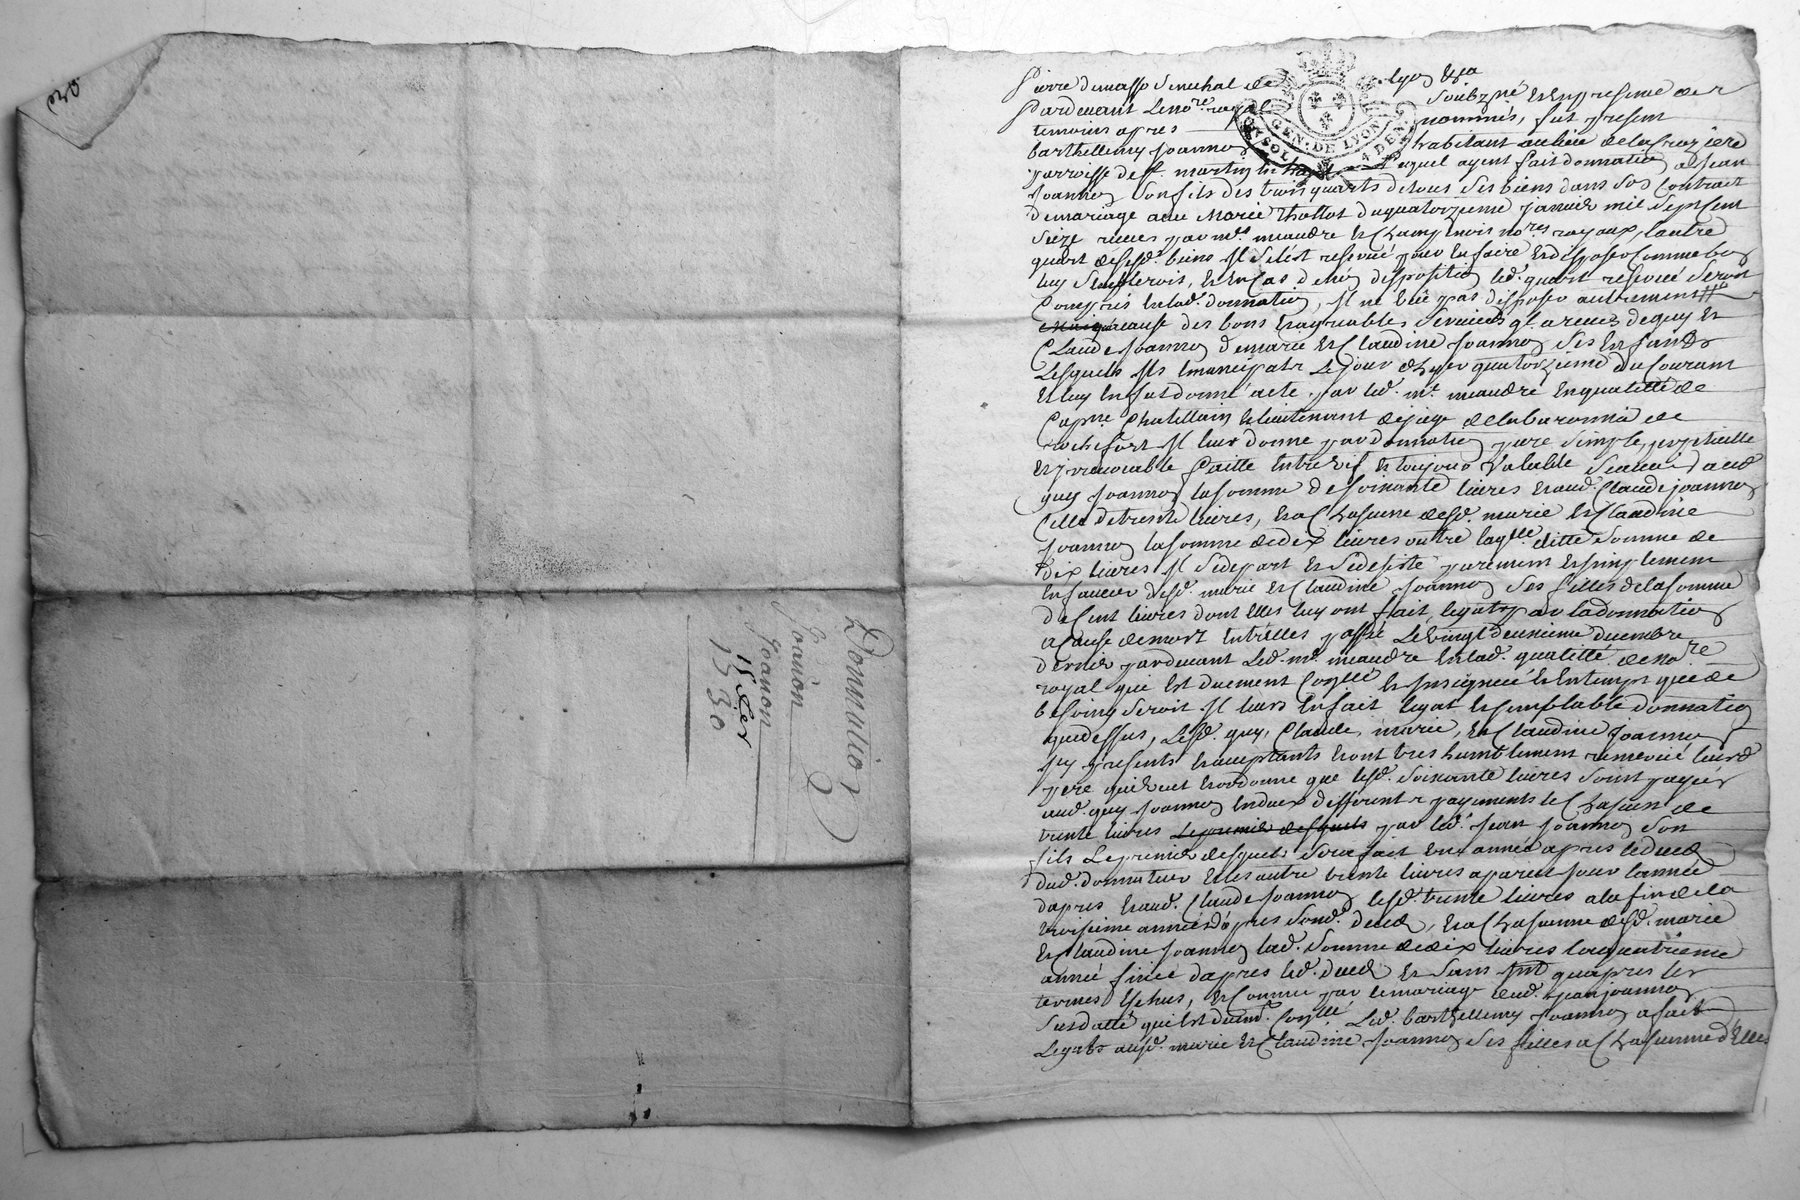 Donnation
Joanon
Joanon
15 Xer
1530
GEN. DE LYON
UN SOL
4 DEN.
Pierre Dumasso Senechal de Lyon &a
Pardevant Le nore. royal Soubzné et en presence des
temoins apres nommés, fut present
Barthellemy Joannon habitant au lieu de la Croziere
parroisse de st. martin Lequel ayent fait donnation a Jean
Joannon Son fils des trois quarts de tous Ses biens dans Son Contrait
de mariage avec Marie Thollot du quatorzieme janvier mil Sept Cent
Seize receu par mes. meaudre et Champ nores. royaux, lautre
quart desesd. biens Il S'est reservé pour en faire et disposer Comme bon
luy Sembleroit, et en Cas de non disposition led. quart reservé Seroit
Compris en lad. donnation, Il ne peu pas disposer autrement
a cause des bons et agreables Services ql a receus de guy et
Claude Joannon de marie et Claudine Joannon Ses enfands
Lesquels Il emancipa le jour d'hyer quatorzieme du Courant
et luy en fut donné acte par led. me. meaudre en qualitté de
Capne. Chatellain et lieutenant de juge de la baronnie de
rochefort Il leur donne par donnation pure Simple, perpetuelle
et Irrevocable faitte entre vif et toujour Valable Scavoir aud.
guy Joannon la Somme de Soixante livres et aud. Claude joannon
Celle de trente livres, et a Chascune desd. marie et Claudine
Joannon la Somme de dix livres outre laqlle. ditte Somme de
dix livres Il Sedepart et Sedesiste purement et Simplement
en faveur desd. marie et Claudine Joannon Ses filles de la Somme
de Cent livres dont elles luy ont fait legat par la donnation
a Cause de mort entrelles passé Le Vingt deuxieme decembre
dernier pardevant Led. me. meaudre en lad. qualitté de nore.
royal qui est duement Conllé et Insignué et en temps que de
besoing Seroit Il leurs en fait legat et Semblable donnation
que dessus, Lesd. guy, Claude, marie, et Claudine Joannon
Icy presents et acceptants et ont tres humblement remercié leurd.
pere qui veut et ordonne que lesd. Soixante livres Soint payés
aud. guy Joannon en deux differents payements de Chascun de
trente livres Le premier desquels par led. Jean Joannon Son
fils Le premier desquels Sera fait une année apres le deced
dud. donnateur et les autre trente livres a pareil jour lannée
dapres et aud. Claude Joannon lesd. trente livres a la fin de la
troisieme année d'apres Sond. deced, et a Chascune desd. marie
et Claudine Joannon lad. Somme de dix livres la quatrieme
année finie dapres led. deced et Sans Int quapres les
termes Echus, et Comme par le mariage dud. Jean Joannon
Susdatté qui est duemt. Conllé Led. barthellemy Joannon a fait
Legats ausd. marie et Claudine Joannon Ses filles a Chascunne d'Elles